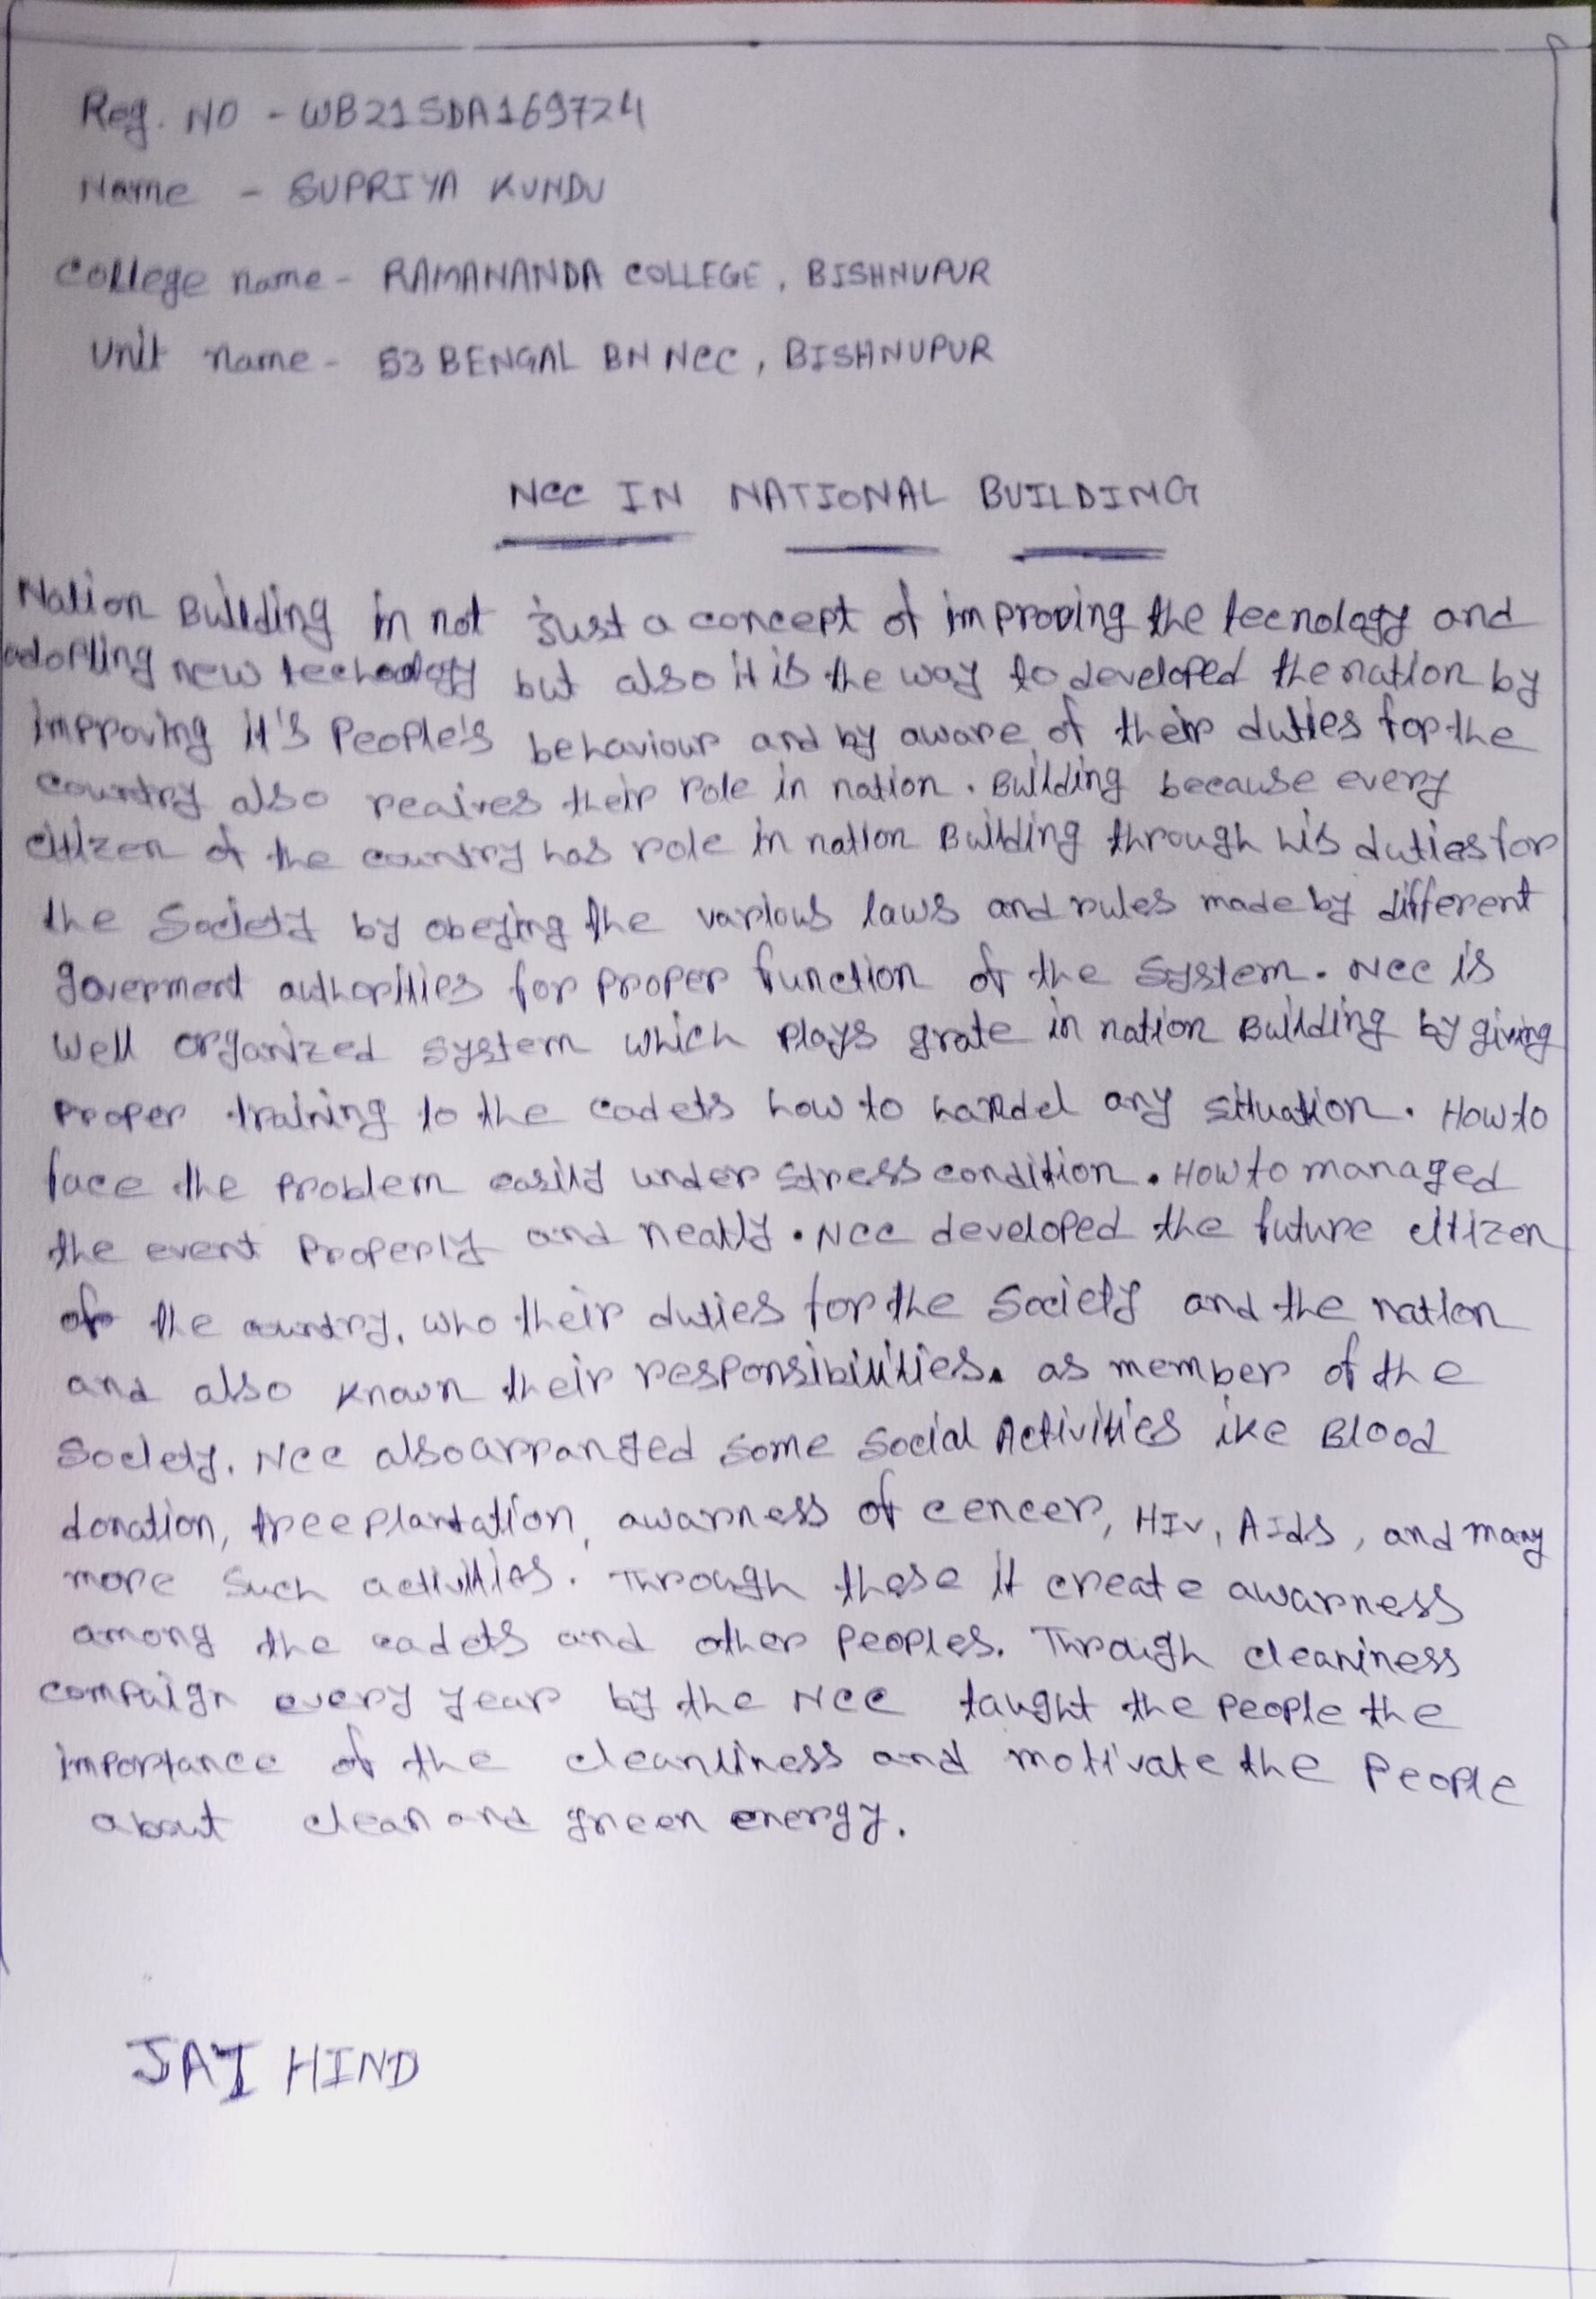 Reg. NO - WB21SDA169724
Name - SUPRIYA KUNDU
College name - RAMANANDA COLLEGE, BISHNUPUR
Unit name - 53 BENGAL BN NCC, BISHNUPUR
NCC IN NATIONAL BUILDING
Nation Building in not just a concept of improving the tecnology and
adopting new technology but also it is the way to developed the nation by
improving it's People's behaviour and by aware of their duties for the
country also reaires their role in nation. Building because every
citizen of the country has role in nation Building through his duties for
the Society by obeying the various laws and rules made by different
goverment authorities for proper function of the System. NCC is
well organized system which plays grate in nation Building by giving
proper training to the cadets how to handel any situation. How to
face the problem easily under stress condition. How to managed
the event Properly and neatly. NCC developed the future citizen
of the country, who their duties for the Society and the nation
and also known their responsibilities. as member of the
Society. NCC also arranged some Social Activities ike Blood
donation, tree plantation, awarness of cencer, HIV, AIDS, and many
more such activities. Through these it create awarness
among the cadets and other peoples. Through cleaniness
campaign every year by the NCC taught the people the
importance of the cleanliness and motivate the People
about clean and green energy.
JAI HIND